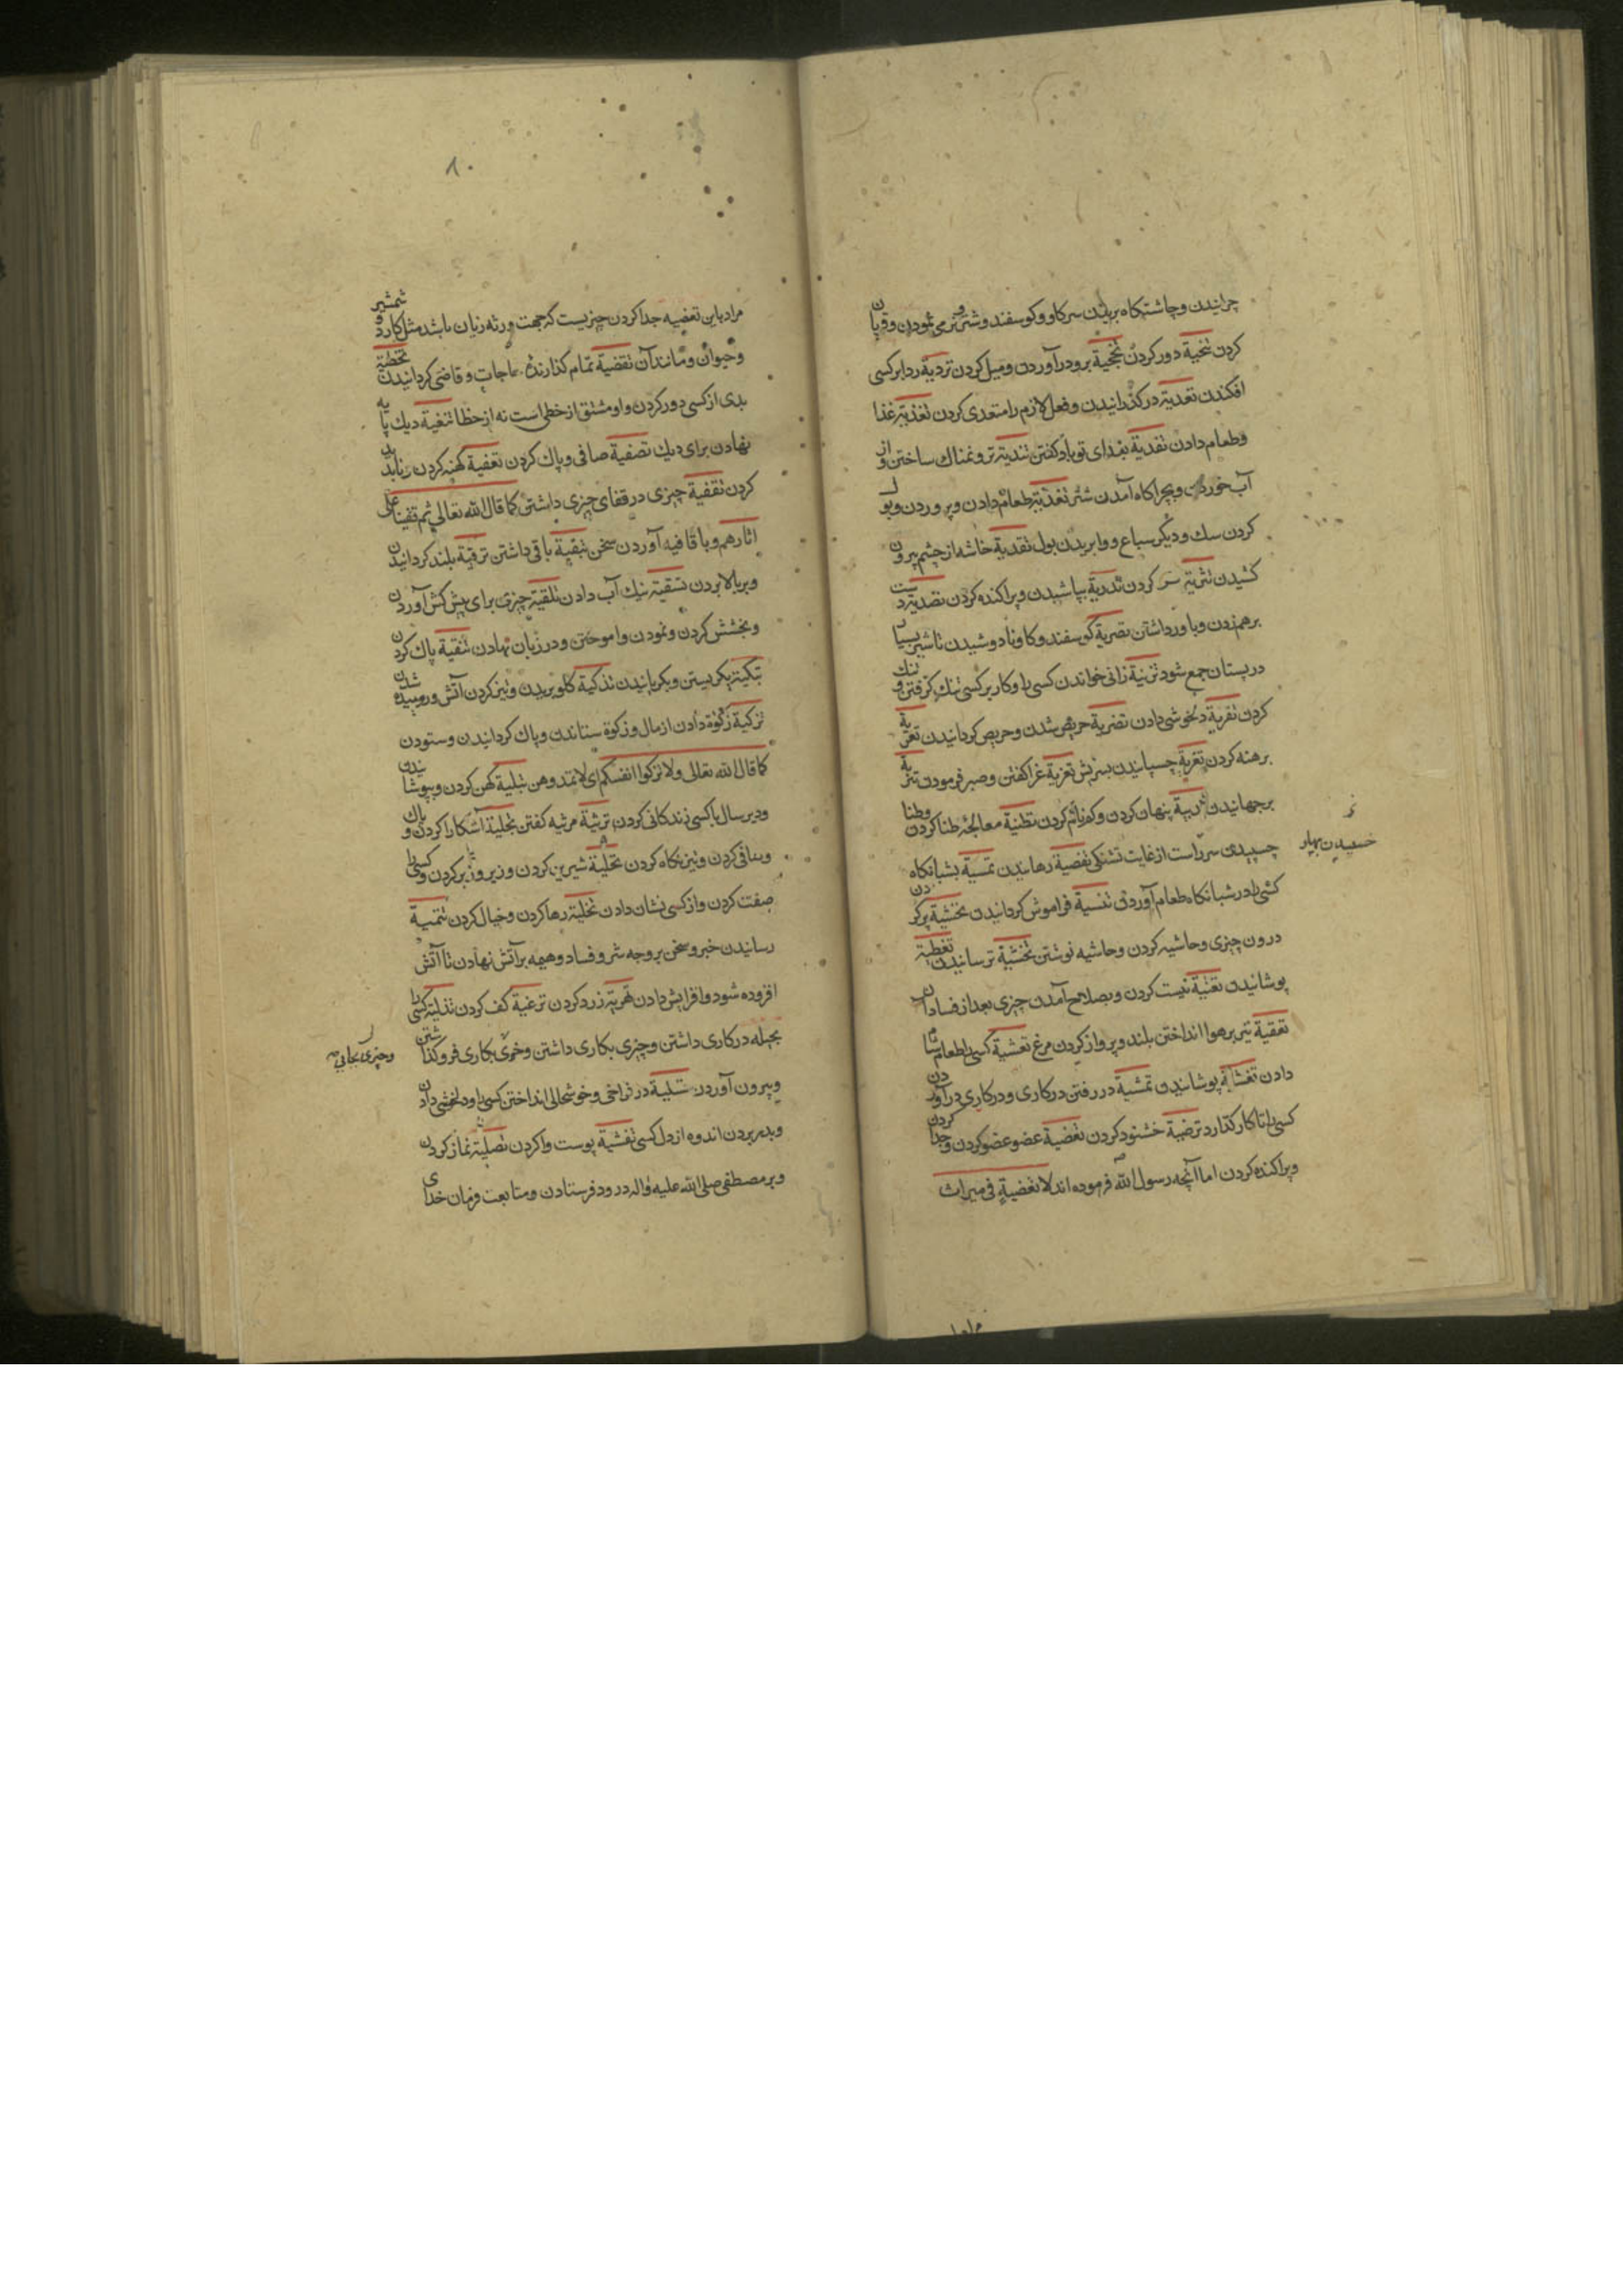 چرانیدن و چاشتکاه بریدن سر کاو و کوسفند و شتر و نرمی نمودن و قربان
کردن تنحیة دور کردن برو درآوردن و میل کردن تردیة ردا بر کسی
افکندن تعدیة درکذرانیدن و فعل لازم را متعدی کردن تغذیة غذا
و طعام دادن تفدیة فدای تو باد کفتن تندیة تر و نمناک ساختن و از
آب خوردن و بچراکاه آمدن شتر تغذیة طعام دادن و پروردن و بول
کردن سک و دیکر سباع و وا بریدن بول تقدیة خاشه از چشم بیرون
کشیدن تثریة کردن تذریة بپاشیدن و پراکنده کردن تصدیة دست
برهم زدن و با ور داشتن تصریة کوسفند و کاو نادوشیدن تا شیر بسیار
در پستان جمع شود تزنیة زانی خواندن کسی را و کار بر کسی تنک کرفتن و تنک
کردن دلخوشی دادن تضریة حریص شدن و حریص کردانیدن تعریة
برهنه کردن تغریة چسپانیدن بسریش تعزیة عزا کفتن و صبر فرمودن تنزیة
برجهانیدن پنهان کردن و کردن تطنیة معالجه طنا کردن و طنا
چسپیدن سر راست از غایت تشنکی تفصیة رهانیدن تمسیة بشبانکاه
کسی را در شبانکاه طعام آوردن تنسیة فراموش کردانیدن تحشیة پر کردن
درون چیزی و حاشیه کردن و حاشیه نوشتن تخشیة ترسانیدن تغطیة
پوشانیدن تعفیة نیست کردن و بصلاح آمدن چیزی بعد از فساد آن
تیر بر هوا انداختن بلند و پرواز کردن مرغ تعشیة کسی را طعام شام
دادن تغشیة پوشانیدن تمشیة در رفتن در کاری و در کاری درآوردن
کسی را تا کار کذارد ترضیة خشنود کردن تعضیة عضو عضو کردن و جدا کردن
و پراکنده کردن اما آنچه رسول الله فرموده اند لا تعضیة فی میراث
۸۰
مراد باین تعضیه جدا کردن چیزیست که جهت ورثه زیان باشد مثل کارد و شمشیر
و حیوان و مانند آن تقضیة تمام کذارنده حاجات و قاضی کردانیدن تخطیة
بدی از کسی دور کردن و او مشتق از خطی است نه از خطا تثفیة دیک پایه
نهادن برای دیک تصفیة صافی و پاک کردن تعفیة کهنه کردن
کردن تقفیة چیزی در قفای چیزی داشتن کما قال الله تعالی ثم قفینا علی
اثارهم و با قافیه آوردن سخن تبقیة باقی داشتن ترقیة بلند کردانیدن
و بر بالا بردن تسقیة نیک آب دادن تلقیة چیزی برای پیش کش آوردن
و بخشش کردن و نمودن وا موختن و در زبان نهادن تنقیة پاک کردن
تبکیة بکریستن و بکریانیدن تذکیة کلو بریدن و تیز کردن آتش و
تزکیة زکوة دادن از مال و زکوة ستاندن و پاک کردانیدن و ستودن
کما قال الله تعالی ولا تزکوا انفسکم ای لا تمدحوهن تبلیة کهن کردن و بپوشانیدن
و دیر سال با کسی زندکانی کردن ترثیة مرثیه کفتن تجلیة آشکارا کردن و پاک
و صافی کردن و تیز نکاه کردن تحلیة شیرین کردن و زیر و زبر کردن و کسی را
صفت کردن و از کسی نشان دادن تخلیة رها کردن و خیال کردن تنمیة
رسانیدن خبر و سخن بر وجه شر و فساد و هیمه بر آتش نهادن تا آتش
افزوده شود و افزایش دادن زرد کردن ترغیة کف کردن کسی را
بحیله در کاری داشتن و چیزی بکاری داشتن و بکاری فرو کذاشتن
و چیزی بجایی
و بیرون آوردن تسلیة در فراخی و خوشحالی انداختن کسی را و دلخوشی دادن
و بدر بردن اندوه از دل کسی پوست وا کردن تصلیة نماز کردن
و بر مصطفی صلی الله علیه و اله درود فرستادن و متابعت فرمان خدای